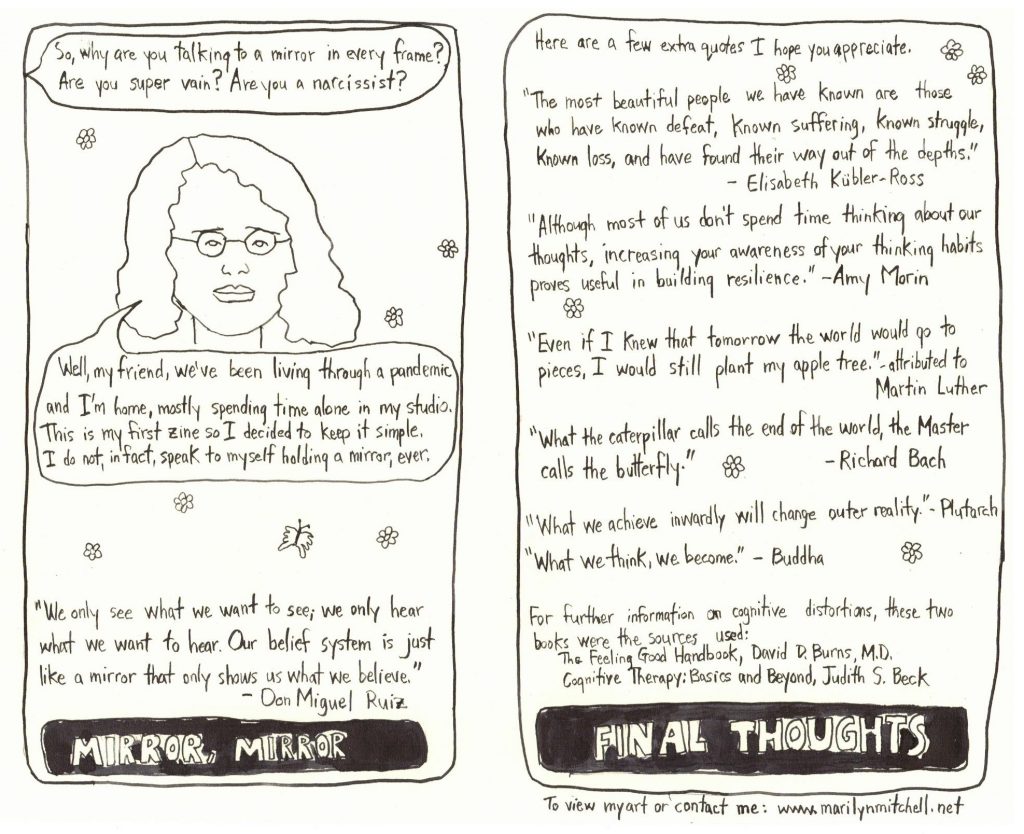 So, why are you talking to a mirror in every frame?
Are you super vain? Are you a narcissist?
Well, my friend, we've been living through a pandemic
and I'm home, mostly spending time alone in my studio.
This is my first zine so I decided to keep it simple.
I do not, in fact, speak to myself holding a mirror, ever.
"We only see what we want to see; we only hear
what we want to hear. Our belief system is just
like a mirror that only shows us what we believe."
- Don Miguel Ruiz
MIRROR, MIRROR
Here are a few extra quotes I hope you appreciate.
"The most beautiful people we have known are those
who have known defeat, known suffering, known struggle,
known loss, and have found their way out of the depths."
- Elisabeth Kübler-Ross
"Although most of us don't spend time thinking about our
thoughts, increasing your awareness of your thinking habits
proves useful in building resilience." -Amy Morin
"Even if I knew that tomorrow the world would go to
pieces, I would still plant my apple tree."-attributed to
Martin Luther
"What the caterpillar calls the end of the world, the Master
calls the butterfly." -Richard Bach
"What we achieve inwardly will change outer reality."- Plutarch
"What we think, we become." - Buddha
For further information on cognitive distortions, these two
books were the sources used:
The Feeling Good Handbook, David D. Burns, M.D.
Cognitive Therapy: Basics and Beyond, Judith S. Beck
FINAL THOUGHTS
To view my art or contact me: www.marilynmitchell.net